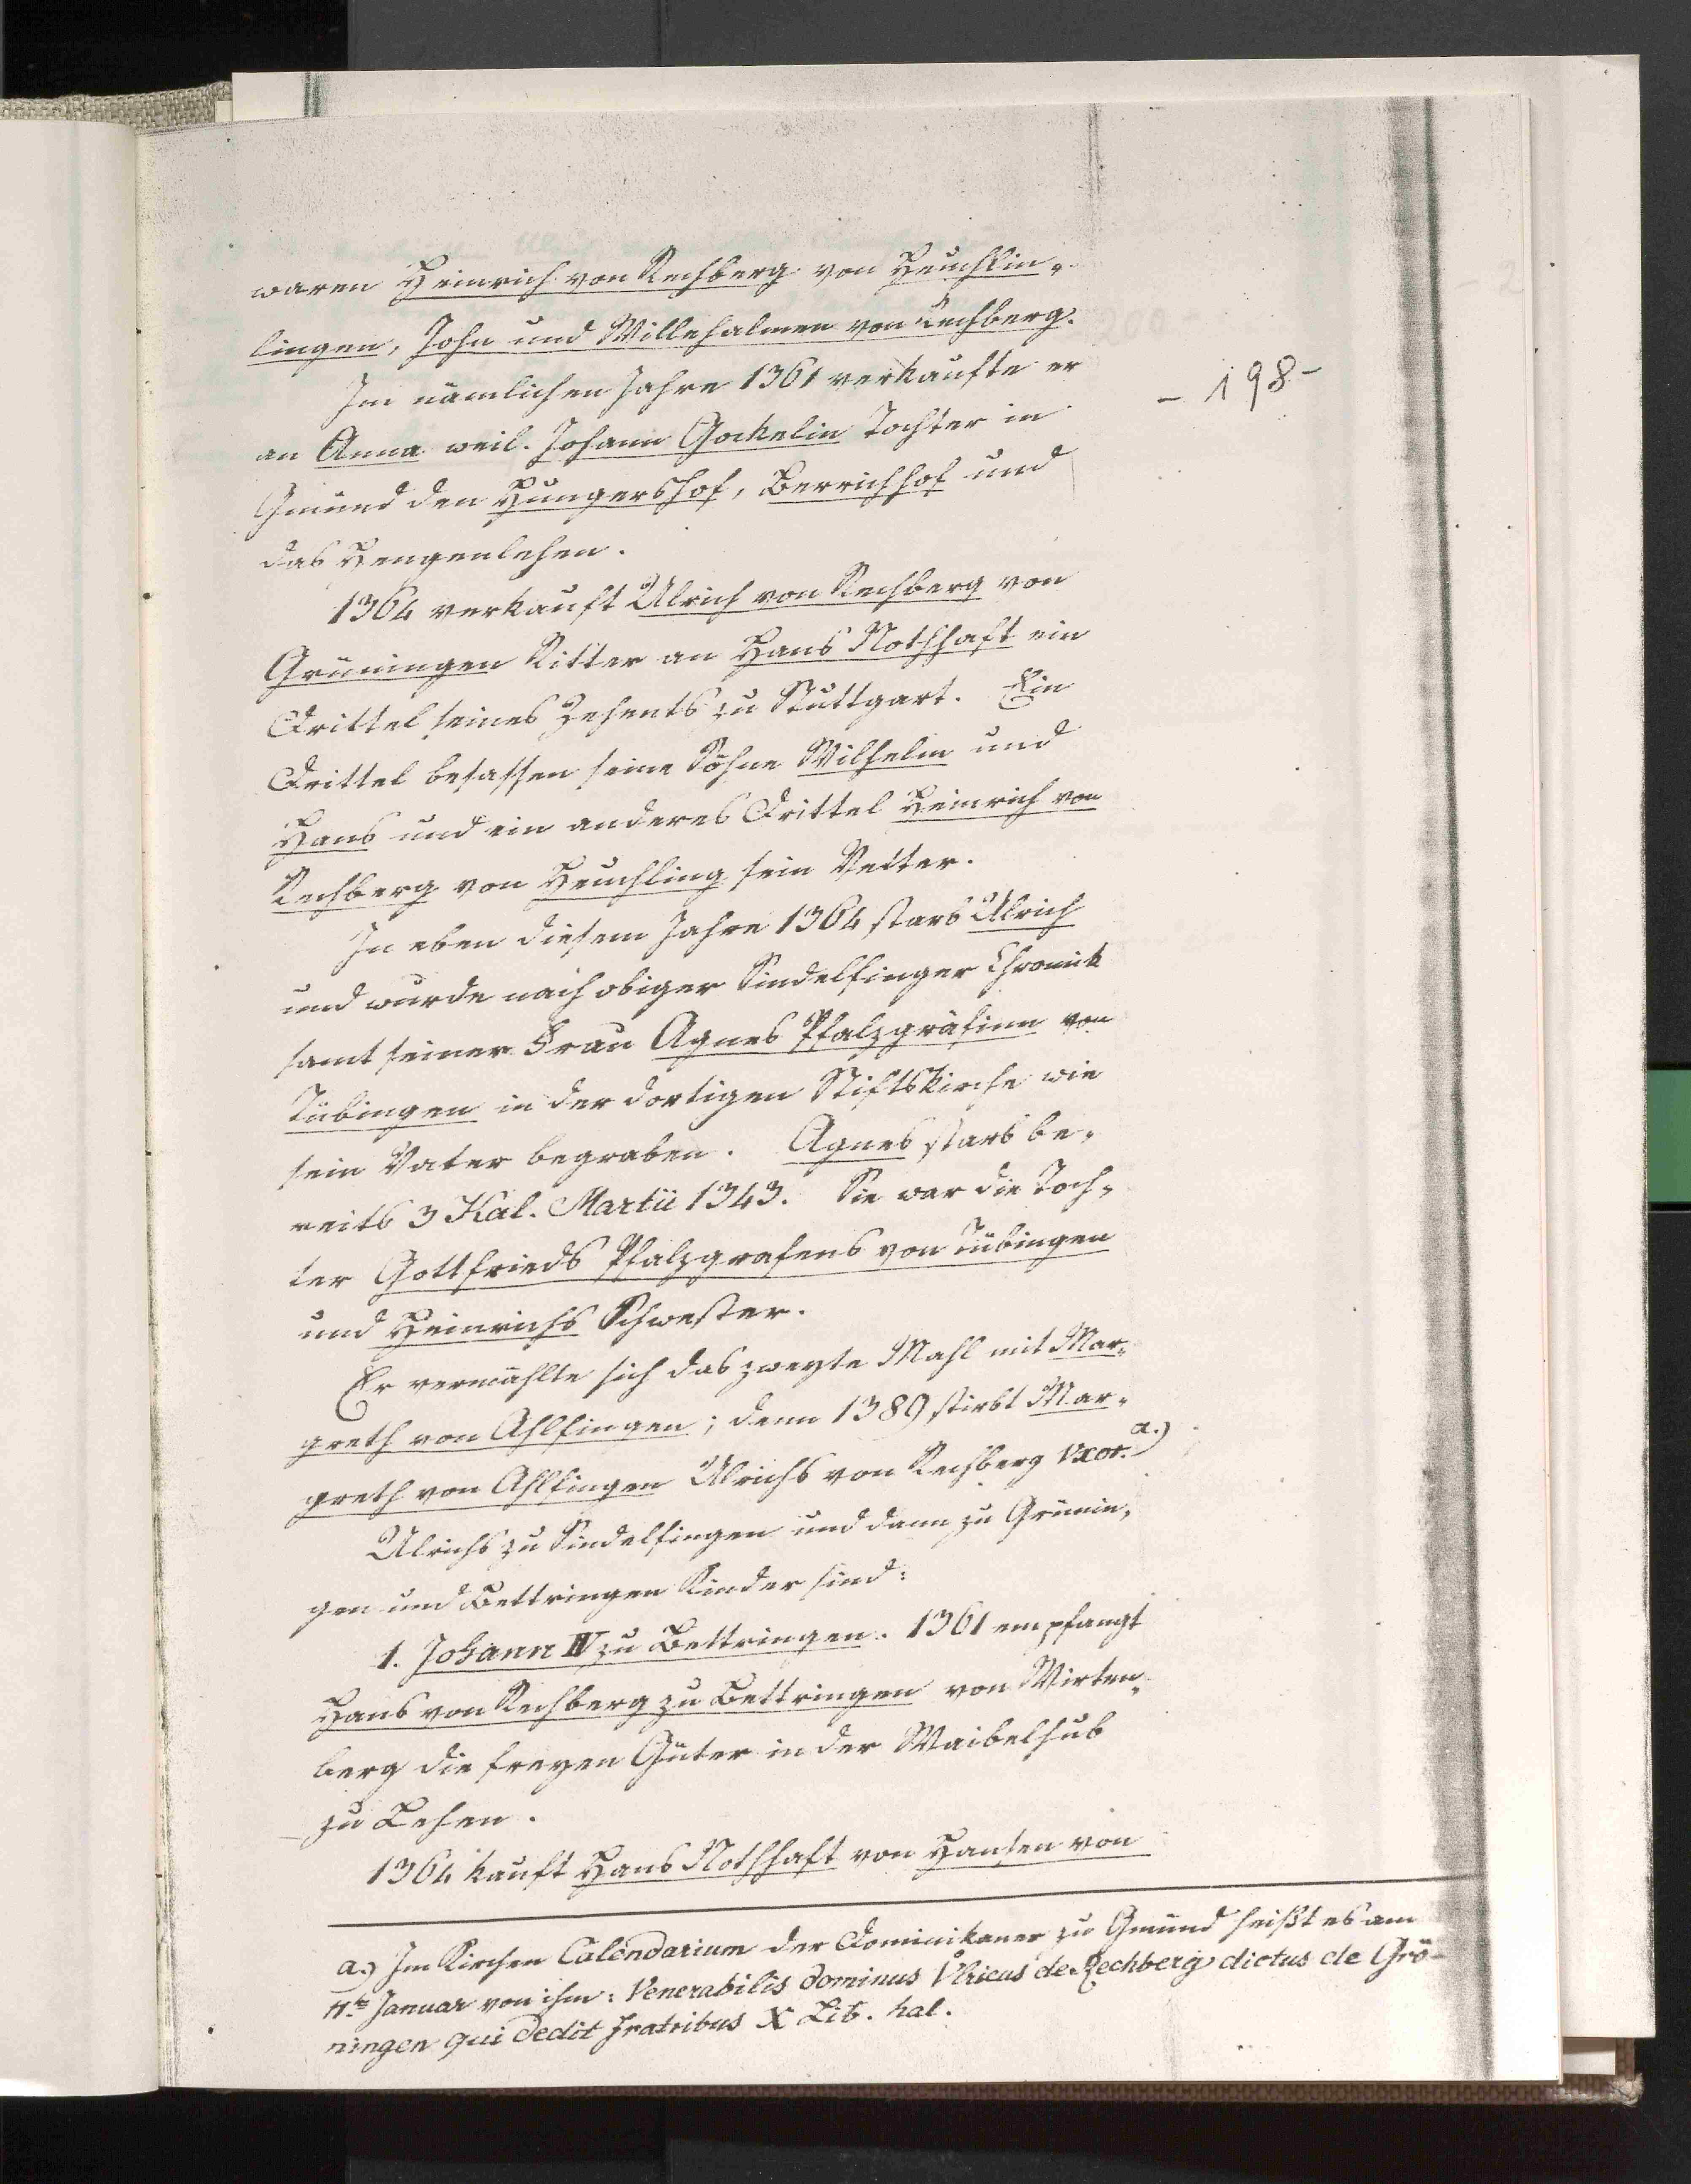 waren Heinrich von Rechberg von Heuchlin-
lingen, John und Willehalmen von Rechberg.
Im nämlichen Jahre 1361 verkaufte er
- 198 -
an Anna weil. Johann Gockelin Tochter in
Gmünd den Hungershof, Berrichhof und
das Hengenlehen.
1364 verkauft Ulrich von Rechberg von
Grüningen Ritter an Hans Nothhaft ein
Drittel seines Zehents zu Stuttgart. Ein
Drittel besassen seine Söhne Wilhelm und
Hans und ein anderes Drittel Heinrich von
Rechberg von Heuchling sein Vetter.
In eben diesem Jahre 1364 starb Ulrich
und wurde nach obiger Sindelfinger Chronick
samt seiner Frau Agnes Pfalzgräfinn von
Tübingen in der dortigen Stiftskirche wie
sein Vater begraben. Agnes starb be-
reits 3 Kal. Martii 1343. Sie war die Toch-
ter Gottfrieds Pfalzgrafens von Tübingen
und Heinrichs Schwester.
Er vermählte sich das zweyte Mahl mit Mar-
greth von Ahlfingen; denn 1389 stirbt Mar-
greth von Ahlfingen Ulrichs von Rechberg Vxor. a.)
Ulrichs zu Sindelfingen und dann zu Grünin-
gen und Bettringen Kinder sind:
1. Johann IV zu Bettringen. 1361 empfangt
Hans von Rechberg zu Bettringen von Wirten-
berg die freyen Güter in der Waibelhub
zu Lehen.
1364 kauft Hans Nothhaft von Hansen von
a.) Im Kirchen Calendarium der Dominikaner zu Gmünd heißt es am
11.ten Januar von ihm: Venerabilis dominus Vlricus de Rechberg dictus de Grö-
ningen qui dedit fratribus X Lib. hal.